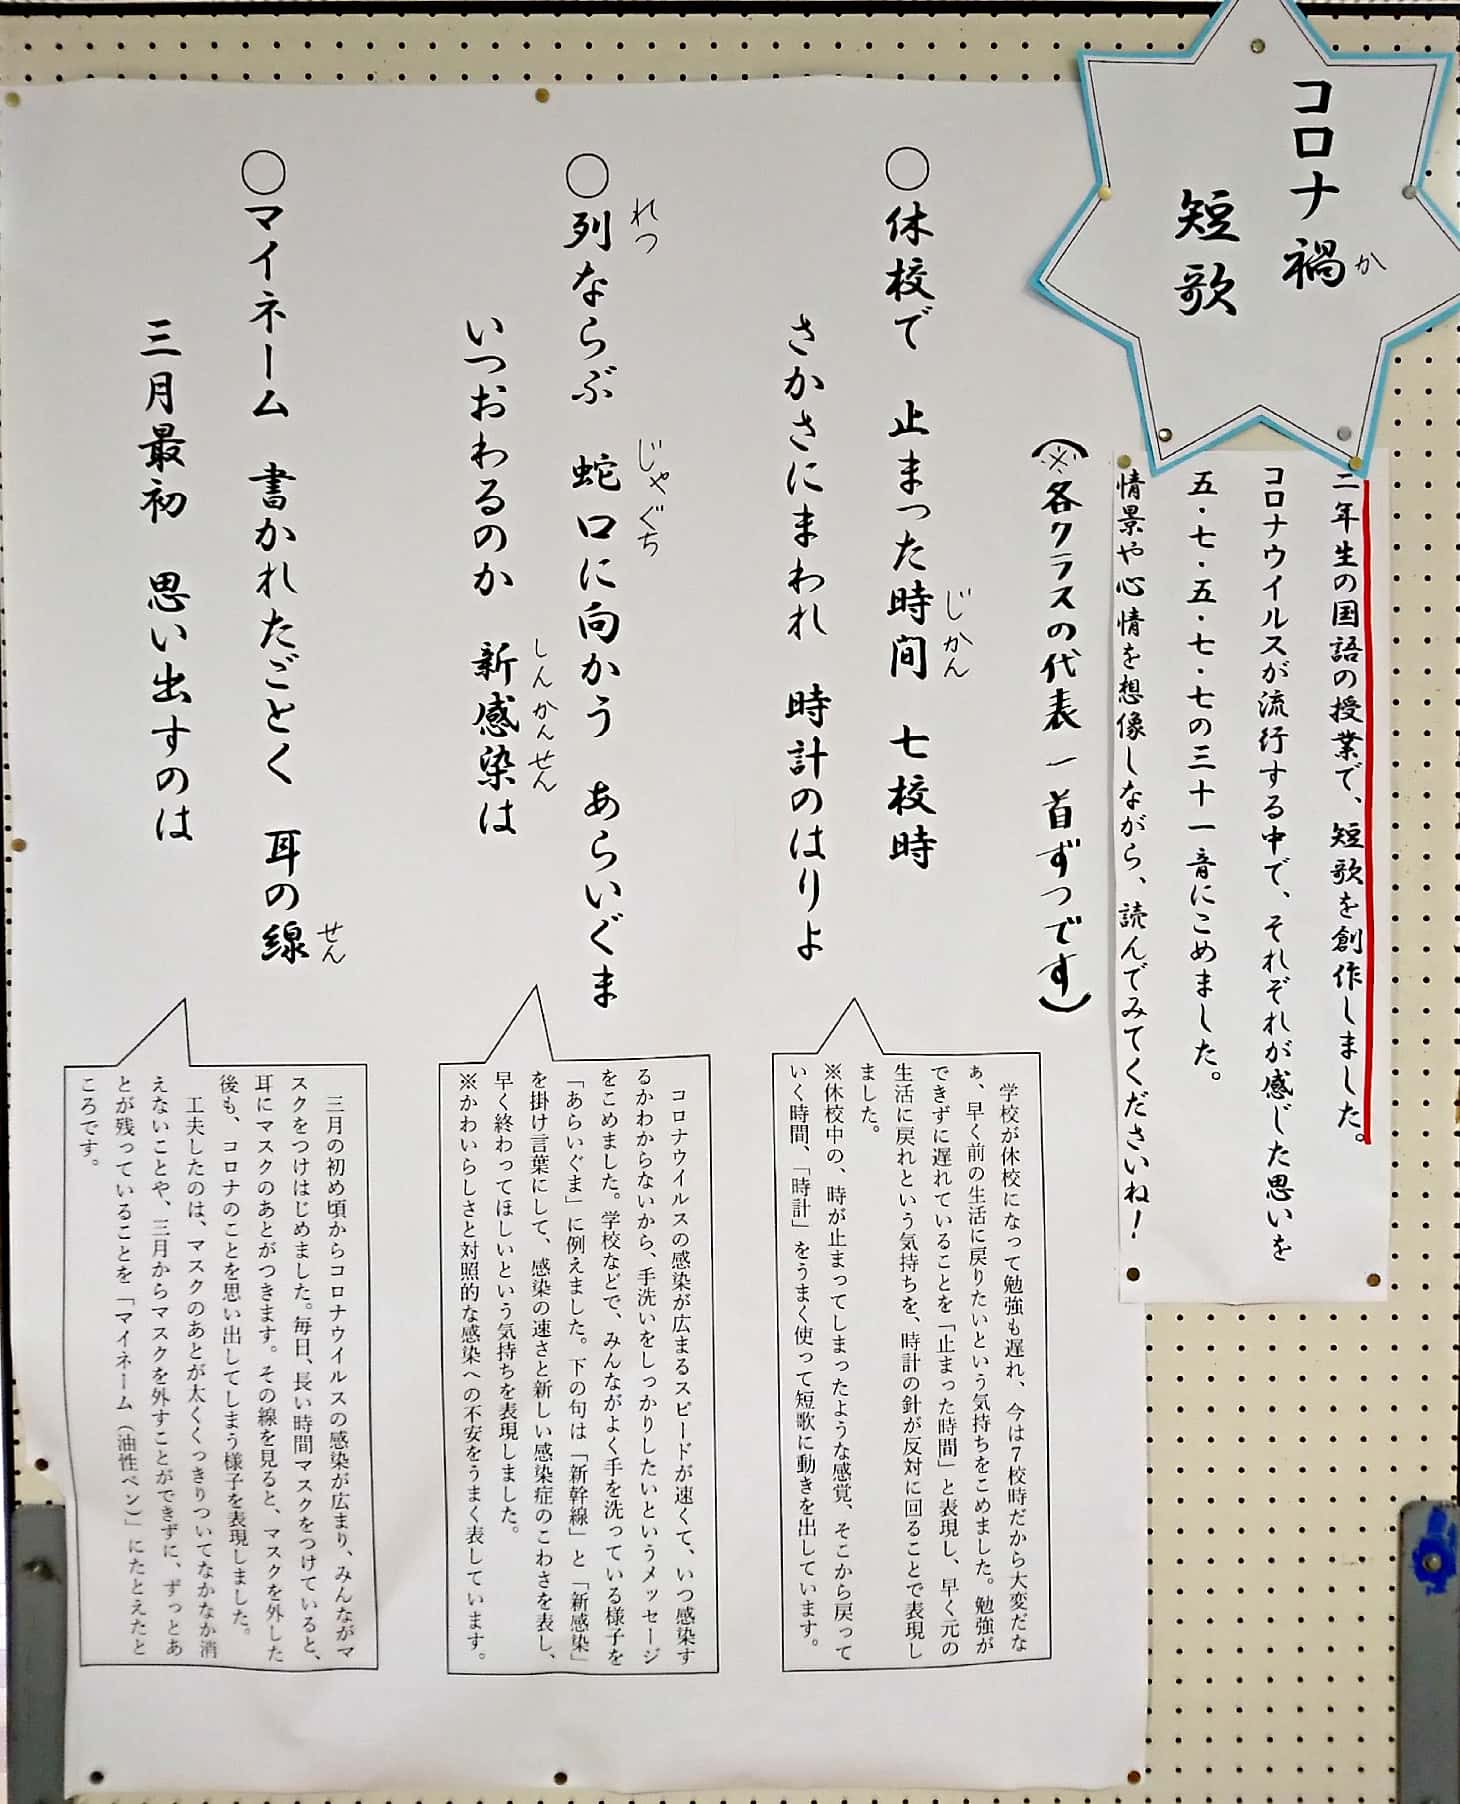 コロナ禍
か
短歌
二年生の国語の授業で、短歌を創作しました。
コロナウイルスが流行する中で、それぞれが感じた思いを
五・七・五・七・七の三十一音にこめました。
情景や心情を想像しながら、読んでみてくださいね！
（※各クラスの代表一首ずつです）
〇休校で　止まった時間　七校時
じかん
さかさにまわれ　時計のはりよ
学校が休校になって勉強も遅れ、今は７校時だから大変だな
ぁ、早く前の生活に戻りたいという気持ちをこめました。勉強が
できずに遅れていることを「止まった時間」と表現し、早く元の
生活に戻れという気持ちを、時計の針が反対に回ることで表現し
ました。
※休校中の、時が止まってしまったような感覚、そこから戻って
いく時間、「時計」をうまく使って短歌に動きを出しています。
〇列ならぶ　蛇口に向かう　あらいぐま
れつ
じゃぐち
いつおわるのか　新感染は
しんかんせん
コロナウイルスの感染が広まるスピードが速くて、いつ感染す
るかわからないから、手洗いをしっかりしたいというメッセージ
をこめました。学校などで、みんながよく手を洗っている様子を
「あらいぐま」に例えました。下の句は「新幹線」と「新感染」
を掛け言葉にして、感染の速さと新しい感染症のこわさを表し、
早く終わってほしいという気持ちを表現しました。
※かわいらしさと対照的な感染への不安をうまく表しています。
〇マイネーム　書かれたごとく　耳の線
せん
三月最初　思い出すのは
三月の初め頃からコロナウイルスの感染が広まり、みんながマ
スクをつけはじめました。毎日、長い時間マスクをつけていると、
耳にマスクのあとがつきます。その線を見ると、マスクを外した
後も、コロナのことを思い出してしまう様子を表現しました。
工夫したのは、マスクのあとが太くくっきりついてなかなか消
えないことや、三月からマスクを外すことができずに、ずっとあ
とが残っていることを「マイネーム（油性ペン）」にたとえたと
ころです。